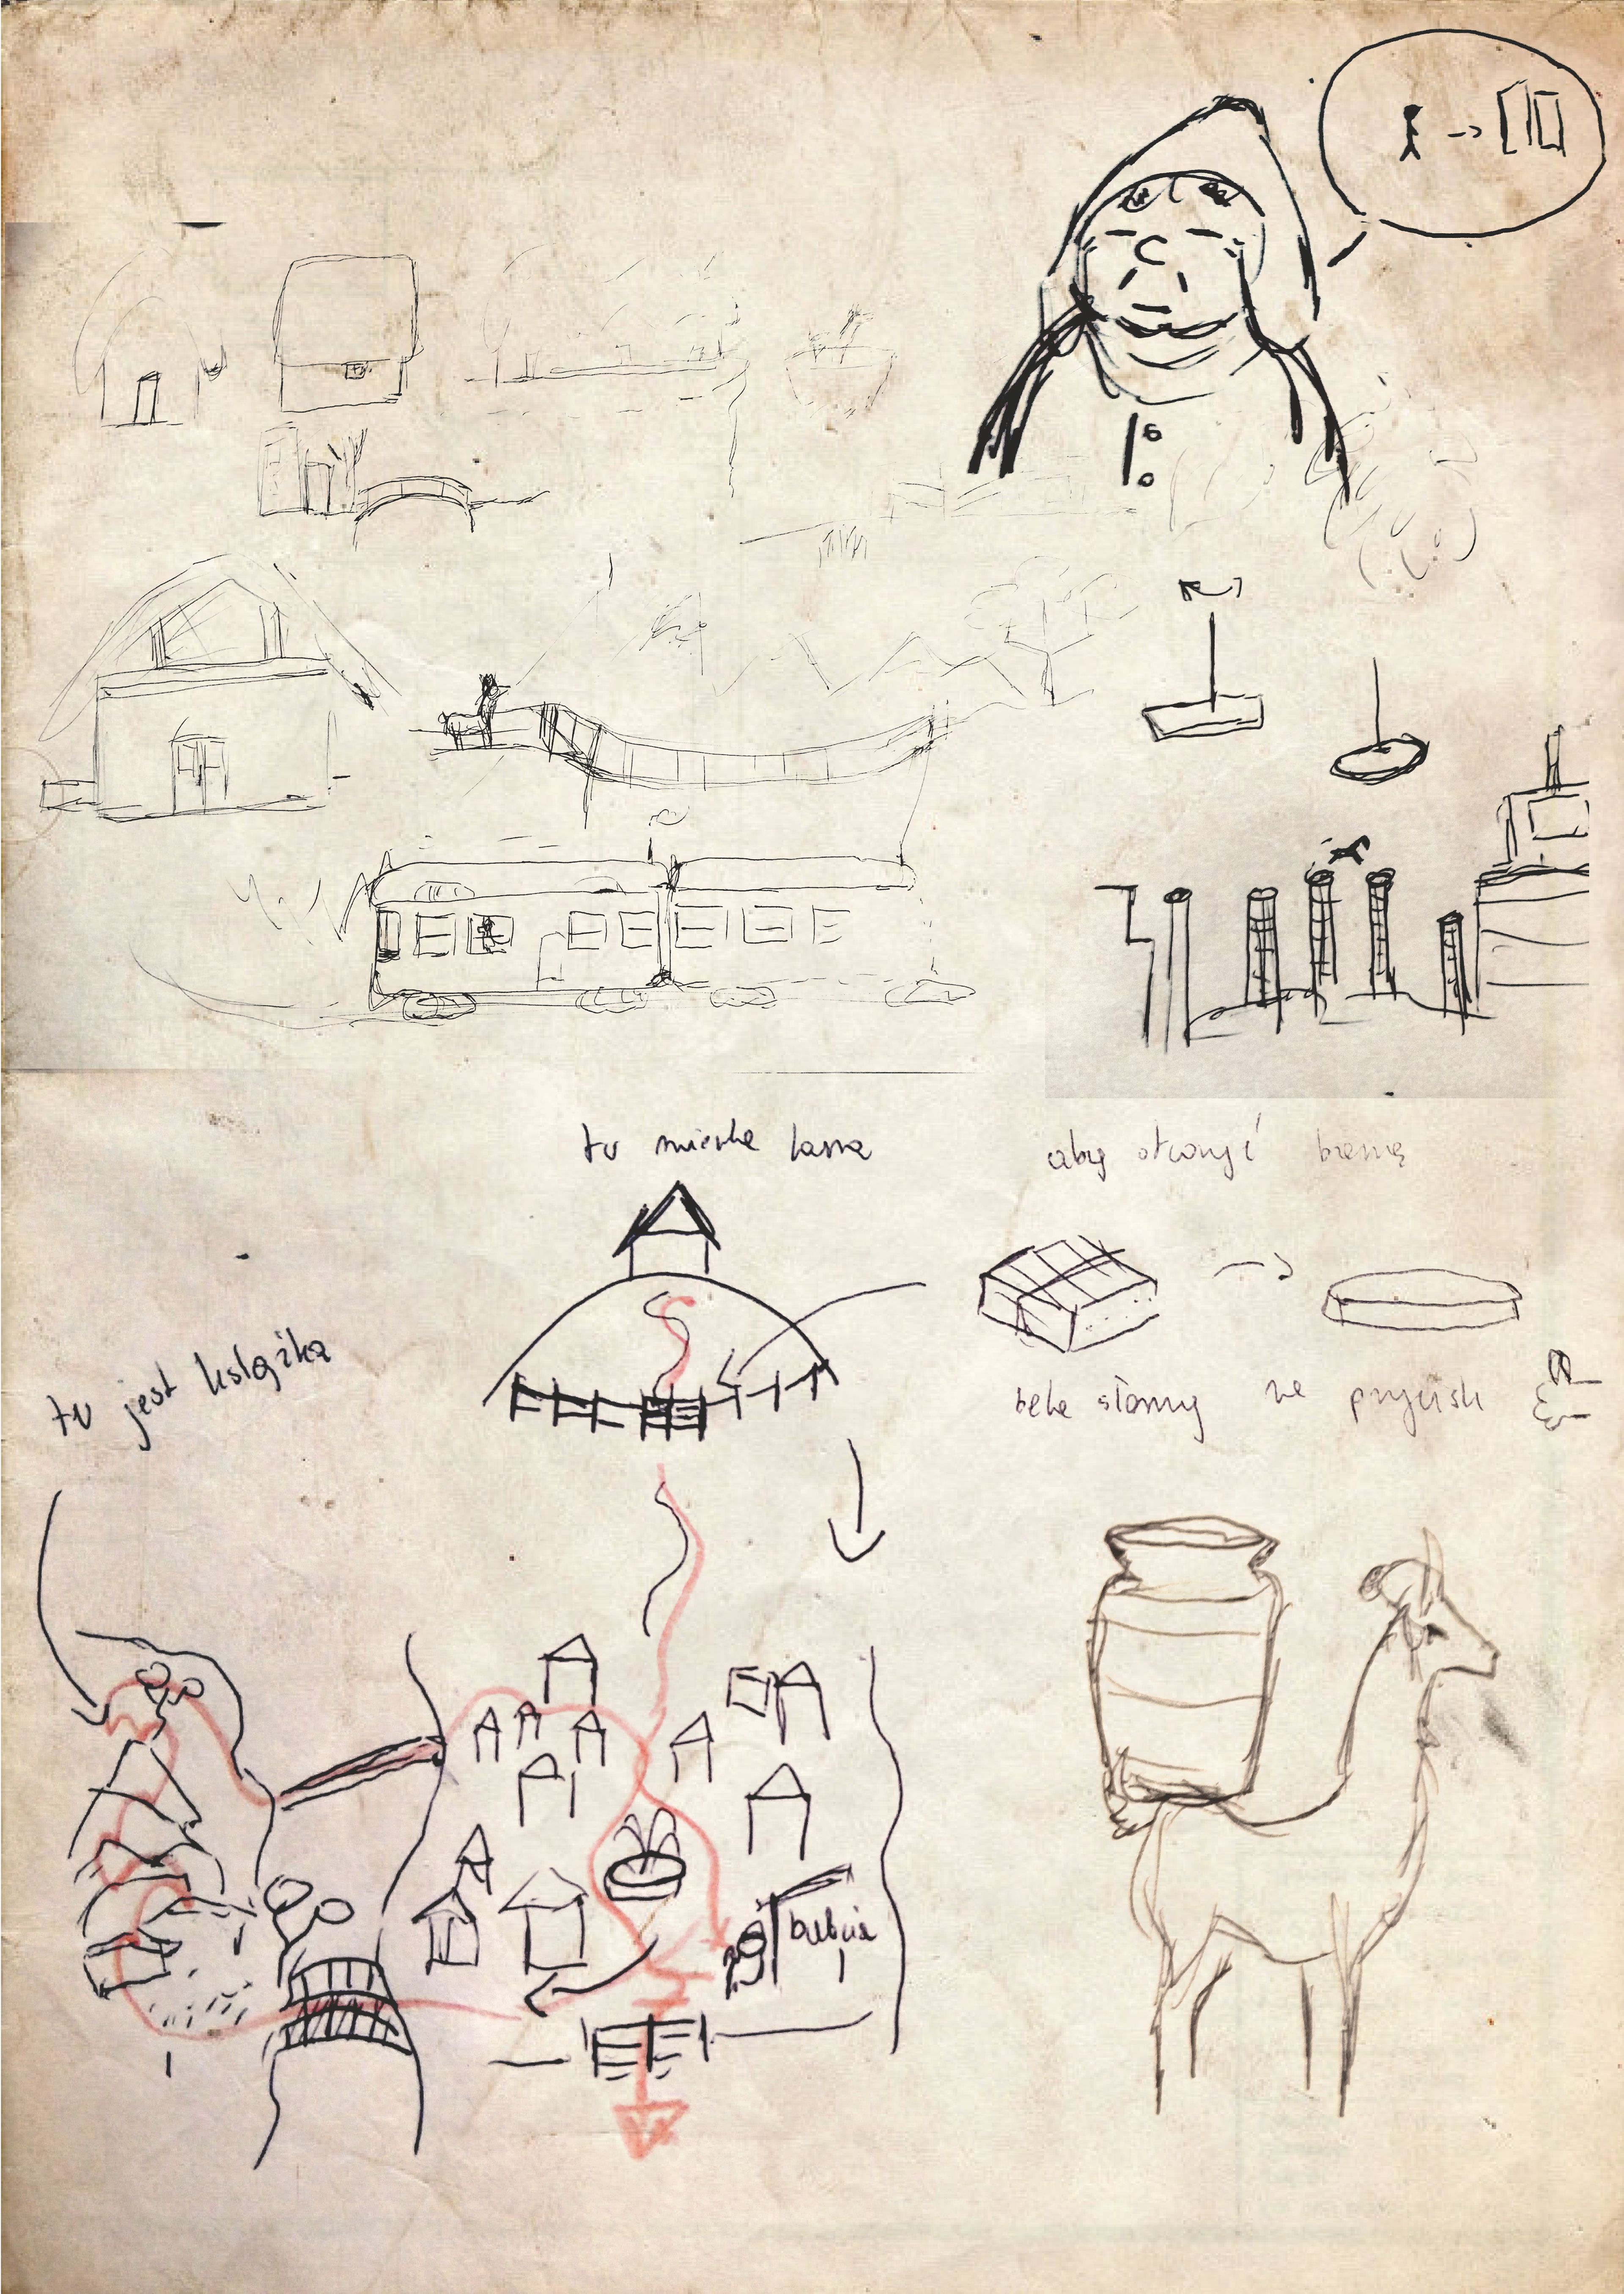 tu mieszka lama
aby otworzyć bramę
tu jest książka
bela słomy na przycisk
babcia